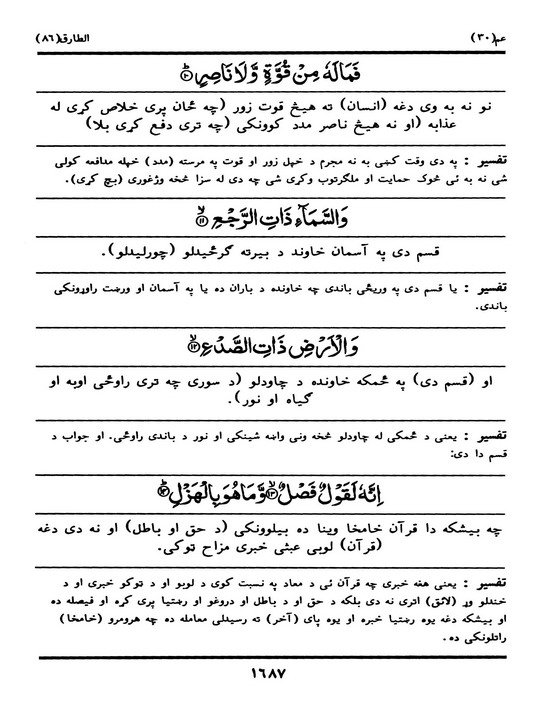 عم(٣٠) الطارق(٨٦)
فَمَالَهٗ مِنْ قُوَّةٍ وَّلَا نَاصِرٍ ۱۰
نو نه به وی دغه (انسان) ته هیڅ قوت زور (چه ځان پری خلاص کړی له
عذابه (او نه هیڅ ناصر مدد کوونکی (چه تری دفع کړی بلا)
تفسیر : په دی وقت کښی به نه مجرم د خپل زور او قوت په مرسته (مدد) خپله مدافعه کولی
شی نه به ئی څوک حمایت او ملګرتوب وکړی شی چه دی له سزا څخه وژغوری (بچ کړی).
وَالسَّمَآءِ ذَاتِ الرَّجْعِ ۱۱
قسم دی په آسمان خاوند د بیرته ګرځیدلو (چورلیدلو).
تفسیر : یا قسم دی په وریځی باندی چه خاونده د باران ده یا په آسمان او ورښت راوړونکی
باندی.
وَالْاَرْضِ ذَاتِ الصَّدْعِ ۱۲
او (قسم دی) په ځمکه خاونده د چاودلو (د سوری چه تری راوځی اوبه او
ګیاه او نور).
تفسیر : یعنی د ځمکی له چاودلو څخه ونی واښه شینکی او نور د باندی راوځی. او جواب د
قسم دا دی:
اِنَّهٗ لَقَوْلٌ فَصْلٌ ۱۳ وَّمَا هُوَ بِالْهَزْلِ ۱۴
چه بیشکه دا قرآن خامخا وینا ده بیلوونکی (د حق او باطل) او نه دی دغه
(قرآن) لوبی عبثی خبری مزاح ټوکی.
تفسیر : یعنی هغه خبری چه قرآن ئی د معاد په نسبت کوی د لوبو او د ټوکو خبری او د
خندلو وړ (لائق) اتری نه دی بلکه د حق او د باطل او دروغو او رښتیا پری کړه او فیصله ده
او بیشکه دغه یوه رښتیا خبره او یوه پای (آخر) ته رسیدلی معامله ده چه هرومرو (خامخا)
راتلونکی ده.
١٦٨٧